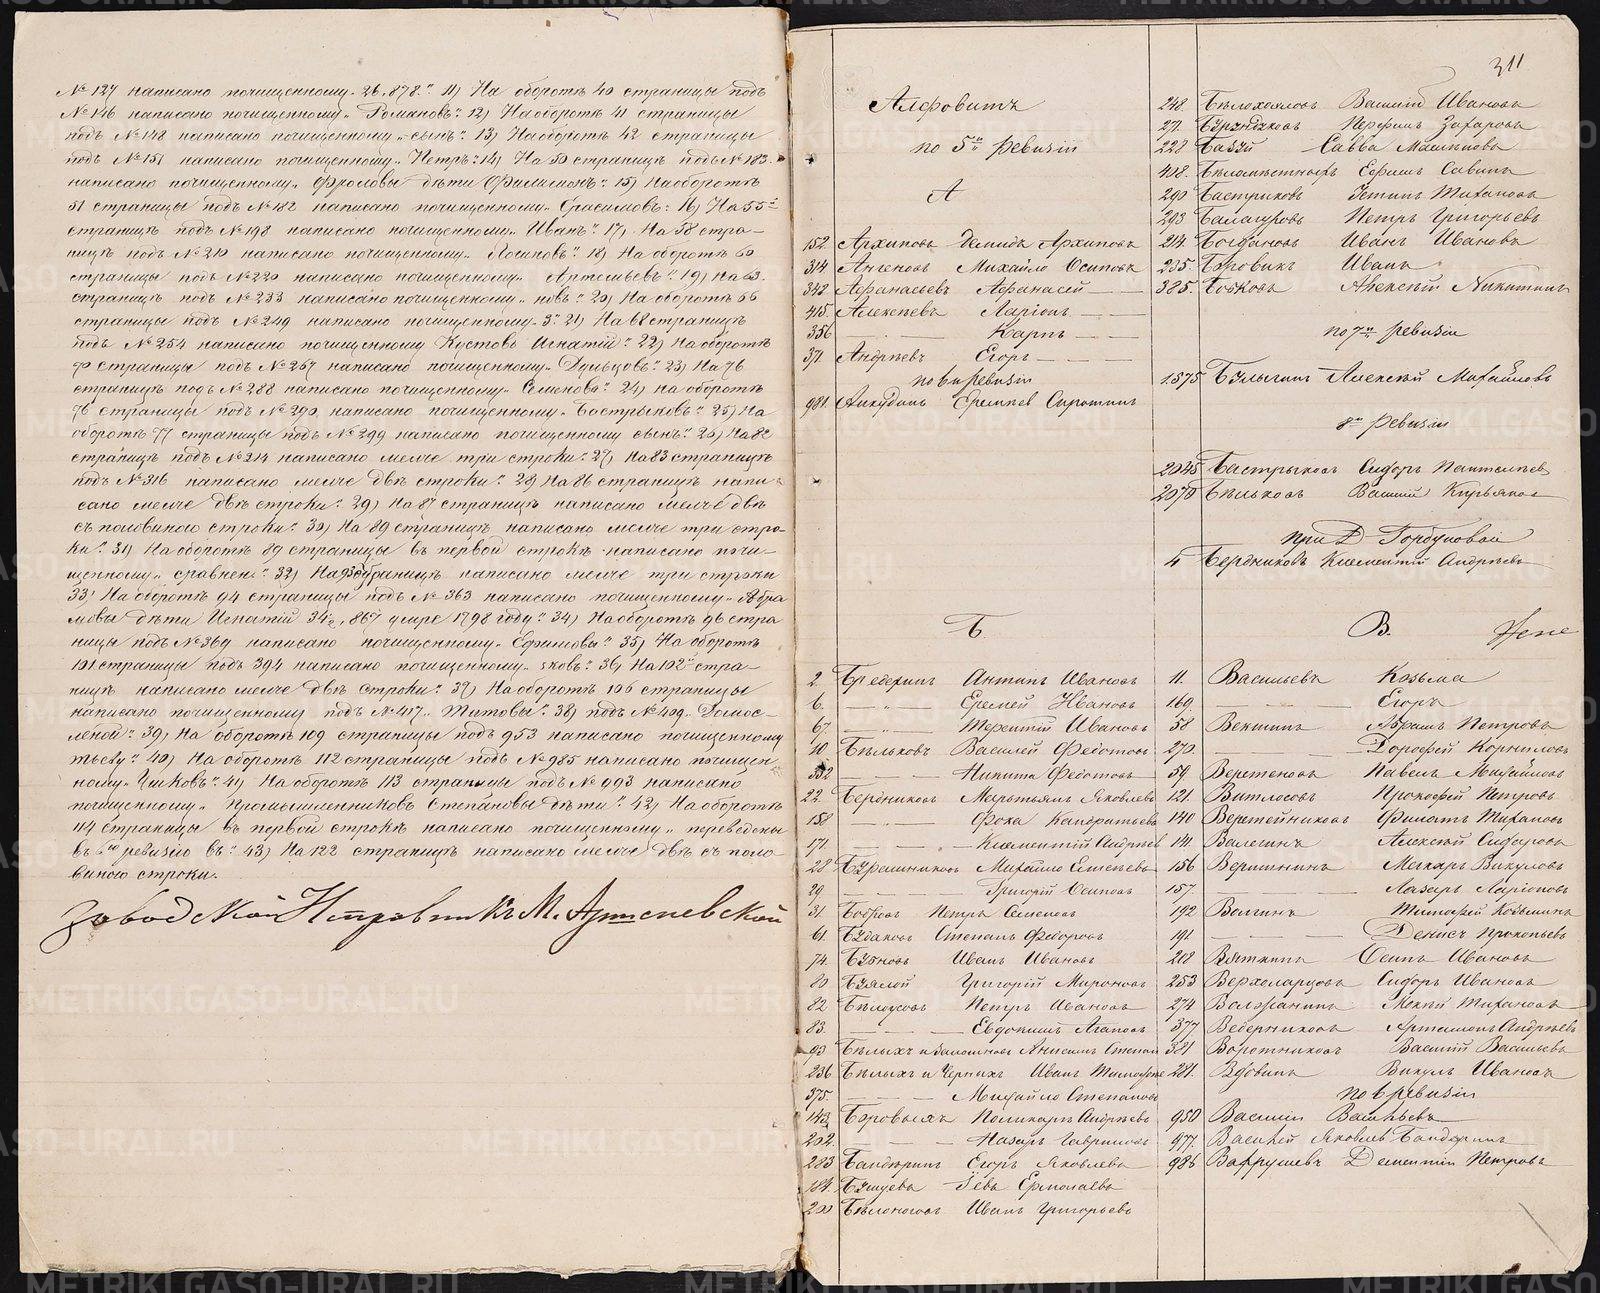 № 127 написано почищенному „26, 878." 11) На оборотѣ 40 страницы подъ
№ 146 написано почищенному „Романовъ". 12) На оборотѣ 41 страницы
подъ № 148 написано почищенному „сынъ". 13) На оборотѣ 42 страницы
подъ № 151 написано почищенному „Петръ". 14) На 50 страницѣ подъ № 183
написано почищенному „Фроловы дѣти Филимонъ". 15) На оборотѣ
51 страницы подъ № 182 написано почищенному „Герасимовъ". 16) На 55й
страницѣ подъ № 198 написано почищенному „Иванъ". 17) На 58 стра-
ницѣ подъ № 210 написано почищенному „Логиновъ". 18) На оборотѣ 60
страницы подъ № 220 написано почищенному „Артемьевъ". 19) На 63
страницѣ подъ № 233 написано почищенному „новъ". 20) На оборотѣ 66
страницы подъ № 249 написано почищенному „3". 21) На 68 страницѣ
подъ № 254 написано почищенному Кустовъ Игнатій". 22) На оборотѣ
страницы подъ № 267 написано почищенному 23) На 76
страницѣ подъ № 288 написано почищенному „Семенова". 24) На оборотѣ
76 страницы подъ № 290 написано почищенному „Бастрыковъ". 25) На
оборотѣ 77 страницы подъ № 299 написано почищенному сынъ". 26) На 82
страницѣ подъ № 314 написано мельче три строки". 27) На 83 страницѣ
подъ № 316 написано мельче двѣ строки". 28) На 86 страницѣ напи-
сано мельче двѣ строки". 29) На 87 страницѣ написано мельче двѣ
съ половиною строки". 30) На 89 страницѣ написано мельче три стро-
ки". 31) На оборотѣ 89 страницы въ первой строкѣ написано почи-
щенному „сравнен". 32) На страницѣ написано мельче три строки
33) На оборотѣ 94 страницы подъ № 363 написано почищенному „Абра
мовы дѣти Игнатій 34½, 867 умре 1798 году". 34) На оборотѣ 96 стра
ницы подъ № 369 написано почищенному „Ефимовы". 35) На оборотѣ
101 страницы подъ 394 написано почищенному „ковъ". 36) На 102й стра-
ницѣ написано мельче двѣ строки". 37) На оборотѣ 106 страницы
написано почищенному подъ № 417 „Титовы". 38) подъ № 409 „Домос-
леной". 39) На оборотѣ 109 страницы подъ 953 написано почищенному
тьеву". 40) На оборотѣ 112 страницы подъ № 985 написано почищен
ному „Чижовъ". 41) На оборотѣ 113 страницы подъ № 993 написано
почищенному „Промышленниковъ Степановы дѣти". 42) На оборотѣ
114 страницы въ первой строкѣ написано почищенному „переведены
въ 6ю ревизію въ". 43) На 122 страницѣ написано мельче двѣ съ поло-
виною строки.
Заводской Исправникъ М. Арте
311
Алфовитъ
по 5й ревизіи
А
152. Архиповъ Демидъ Архиповъ
314 Михайло Осиповъ
342 Афанасьевъ Афанасей
415. Алексѣевъ Ларіонъ
356 Карпъ
371 Андрѣевъ Егоръ
по 6й ревизіи
981. Еремѣев Сиротинъ
Б
2 Бредеринъ Антипъ Ивановъ
6. Еремей Ивановъ
67. Терентій Ивановъ
10. Бѣльковъ Василей Федотовъ
332 Никита Федотовъ
22. Бердниковъ Мартемьянъ Яковлевъ
158 Фока Кандратьевъ
171. Климентій Андрѣев
28 Михайло Елисѣевъ
29 Григорій Осиповъ
31. Бобровъ Петръ Семеновъ
61. Будаковъ Степанъ Федоровъ
74. Бубновъ Иванъ Ивановъ
80 Григорій Мироновъ
82 Бѣлоусовъ Петръ Ивановъ
83 Евдокимъ Агаповъ
93 Бѣлыхъ и Анисимъ Степан
236 Бѣлыхъ и Черныхъ Иванъ Тимофее
375. Михайло Степановъ
143. Боровыхъ Поликарпъ Андрѣевъ
202. Назаръ Гавриловъ
283 Бандеринъ Егоръ Яковлевъ
184. Бушуевъ Іевъ Ермолаевъ
200 Бѣлоноговъ Иванъ Григорьевъ
248 Бѣлохвосовъ Василій Ивановъ
27. Бурундуковъ Перфилъ Захаровъ
228 Савва Машкиновъ
408. Ефимъ Савинъ
290 Бастрыковъ Устинъ Тихановъ
293 Балагуровъ Петръ Григорьевъ
214. Богдановъ Иванъ Ивановъ
235. Боровикъ Иванъ
385. Бобковъ Алексѣй Никитинъ
по 7й ревизіи
1575 Булыгинъ Алексѣй Михайловъ
8й ревизіи
2045 Бастрыковъ Сидоръ Пантелѣев
2070 Бѣльковъ Василій Кирьяновъ
при Д. Горбуновой
4 Бердниковъ Климентій Андрѣевъ
В.
11. Васильевъ Козьма
169. Егоръ
58 Векшинъ Абрамъ Петровъ
270. Дорофей Корниловъ
59. Веретеновъ Павелъ Михайловъ
121. Витлосовъ Прокофей Петровъ
140 Верстейниковъ Филатъ Тихановъ
141. Валегинъ Алексѣй Сидоровъ
156 Вершининъ Макаръ Викуловъ
157. Лазарь Ларіоновъ
192 Волгинъ Тимофей Козьминъ
191. Денисъ Прокопьевъ
218 Вяткинъ Осипъ Ивановъ
253 Верхоларцовъ Сидоръ Ивановъ
274 Волжанинъ Мокѣй Тихановъ
377 Ведерниковъ Артамонъ Андрѣевъ
321 Воротниковъ Василій Васильевъ
281. Вдовинъ Викулъ Ивановъ
по 6 ревизіи
950 Василій Васильевъ
977. Василей Яковлев Бандеринъ
986 Вахрушевъ Дементій Петровъ
METRIKI.GASO-URAL.RU